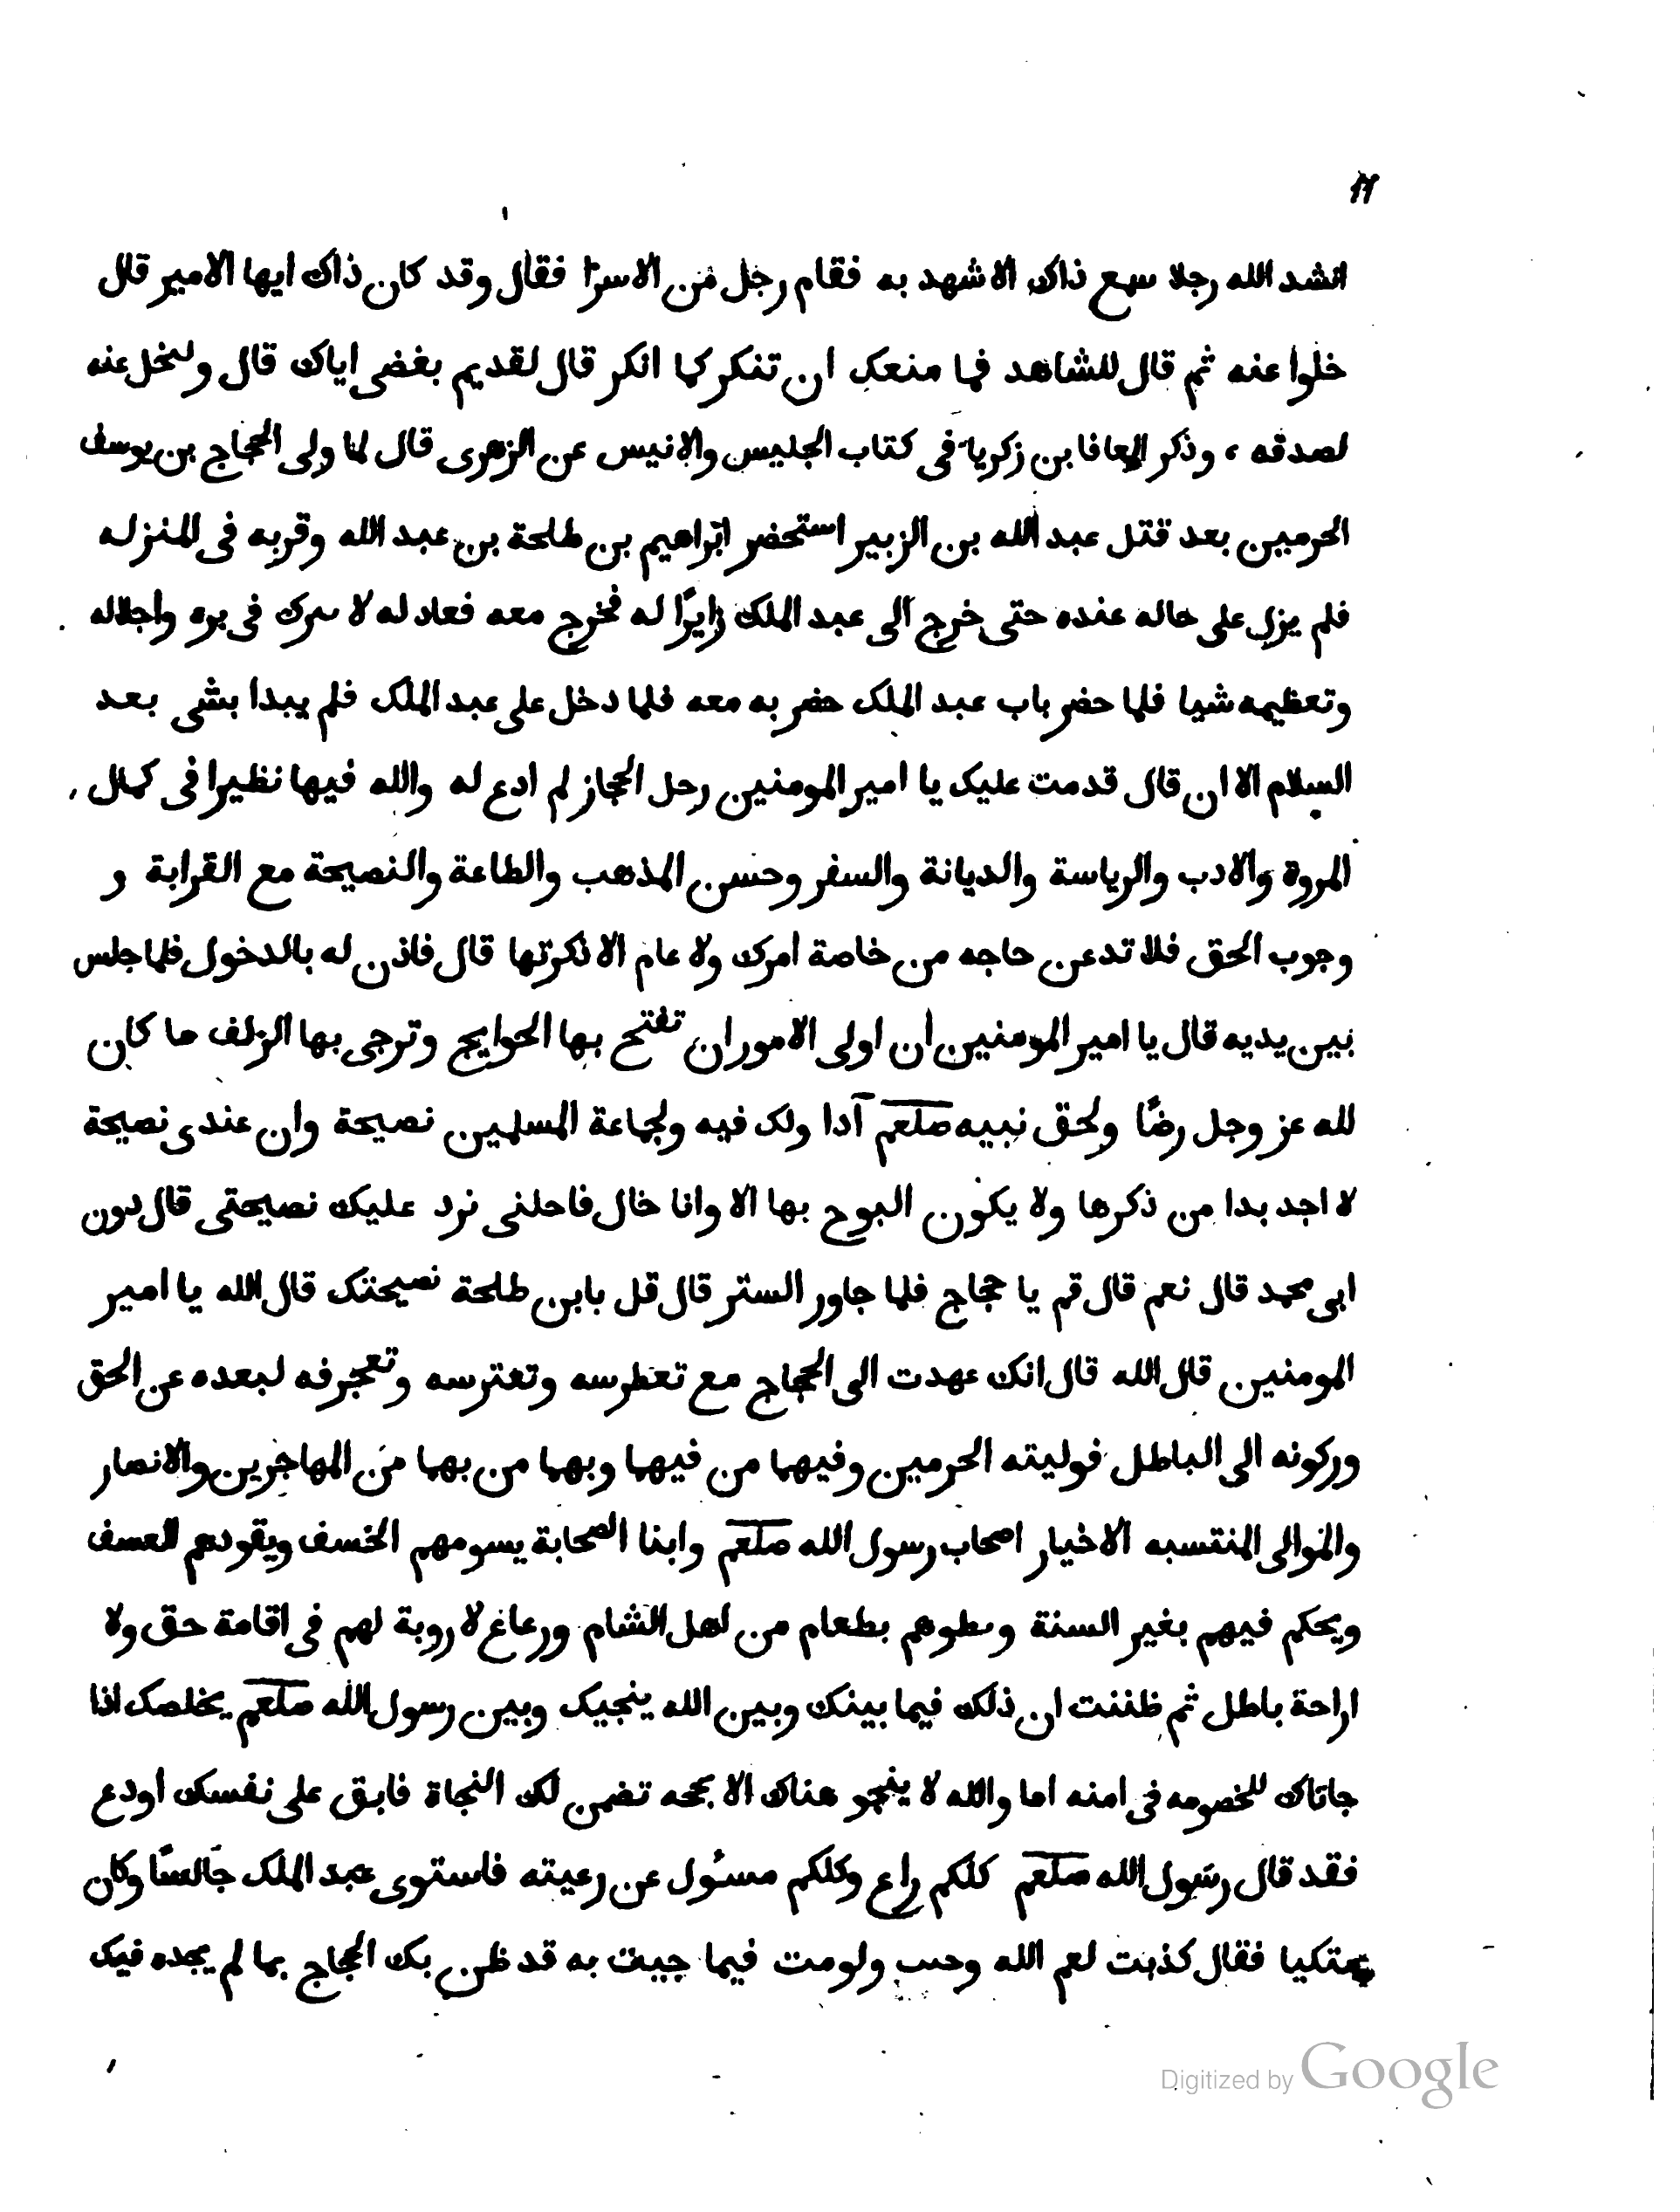 انشد الله رجلا سمع ذاك الا شهد به فقام رجل من الاسرا فقال وقد كان ذاك ايها الامير قال
خلوا عنه ثم قال للشاهد فما منعك ان تنكر كما انكر قال لقديم بغضى اياك قال ولنخل عنه
لصدقه ، وذكر المعافا بن زكريا فى كتاب الجليس والانيس عن الزهرى قال لما ولى الحجاج بن يوسف
الحرمين بعد قتل عبد الله بن الزبير استحضر ابراهيم بن طلحة بن عبد الله وقربه فى المنزله
فلم يزل على حاله عنده حتى خرج الى عبد الملك زايرًا له فخرج معه فعادله لا سرك فى بره واجلاله
وتعظيمه شيا فلما حضر باب عبد الملك حضر به معه فلما دخل على عبد الملك فلم يبدا بشى بعد
السلام الا ان قال قدمت عليك يا امير المومنين رحل الحجاز لم ادع له والله فيها نظيرا فى كمال
المروة والادب والرياسة والديانة والسفر وحسن المذهب والطاعة والنصيحة مع القرابة و
وجوب الحق فلا تدعن حاجه من خاصة امرك ولا عام الا ذكرتها قال فاذن له بالدخول فلما جلس
بين يديه قال يا امير المومنين ان اولى الامور ان تفتح بها الحوايج وترجى بها الزلف ما كان
لله عز وجل رضًا ولحق نبيه صلعم آدا ولك فيه ولجماعة المسلمين نصيحة وان عندى نصيحة
لا اجد بدا من ذكرها ولا يكون البوح بها الا وانا خال فاحلنى نرد عليك نصيحتى قال دون
ابى محمد قال نعم قال قم يا حجاج فلما جاور الستر قال قل بابن طلحة نصيحتك قال الله يا امير
المومنين قال الله قال انك عهدت الى الحجاج مع تغطرسه وتعترسه وتعجرفه لبعده عن الحق
وركونه الى الباطل فوليته الحرمين وفيهما من فيهما وبهما من بهما من المهاجرين والانصار
والموالى المنتسبه الاخيار اصحاب رسول الله صلعم وابنا الصحابة يسومهم الخسف ويقودهم العسف
ويحكم فيهم بغير السنة وسطوهم بطعام من اهل الشام ورعاغ لا روبة لهم فى اقامة حق ولا
اراحة باطل ثم ظننت ان ذلك فيما بينك وبين الله ينجيك وبين رسول الله صلعم يخلصك اذا
جاتاك للخصومه فى امنه اما والله لا ينجو هناك الا بحجه تضمن لك النجاة فابق على نفسك اودع
فقد قال رسول الله صلعم كلكم راع وكلكم مسئول عن رعيته فاستوى عبد الملك جالسًا وكان
متكيا فقال كذبت لعم الله وحسب ولومت فيما جيت به قد ظن بك الحجاج بما لم يجده فيك
Digitized by Google